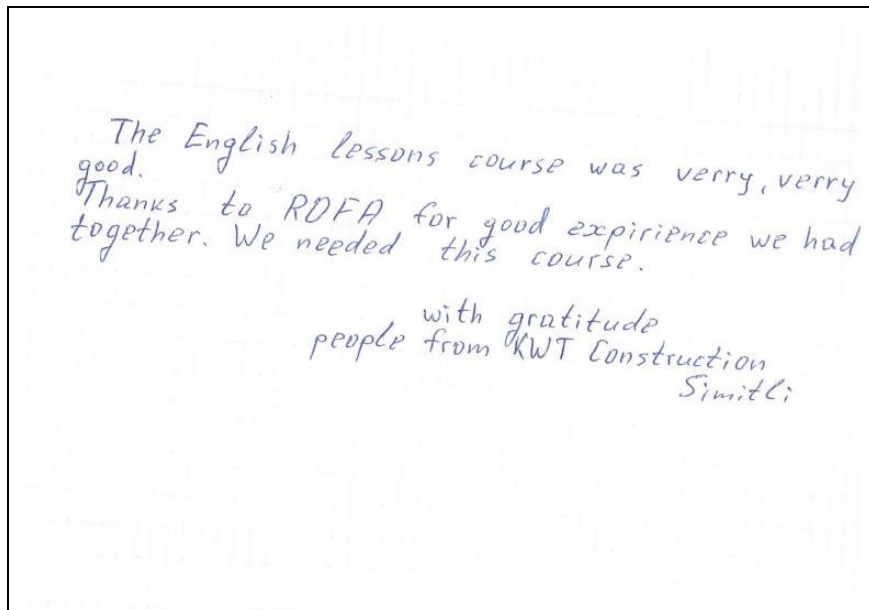 The English lessons course was verry, verry
good.
Thanks to RDFA for good expirience we had
together. We needed this course.
with gratitude
people from KWT Construction
Simitli